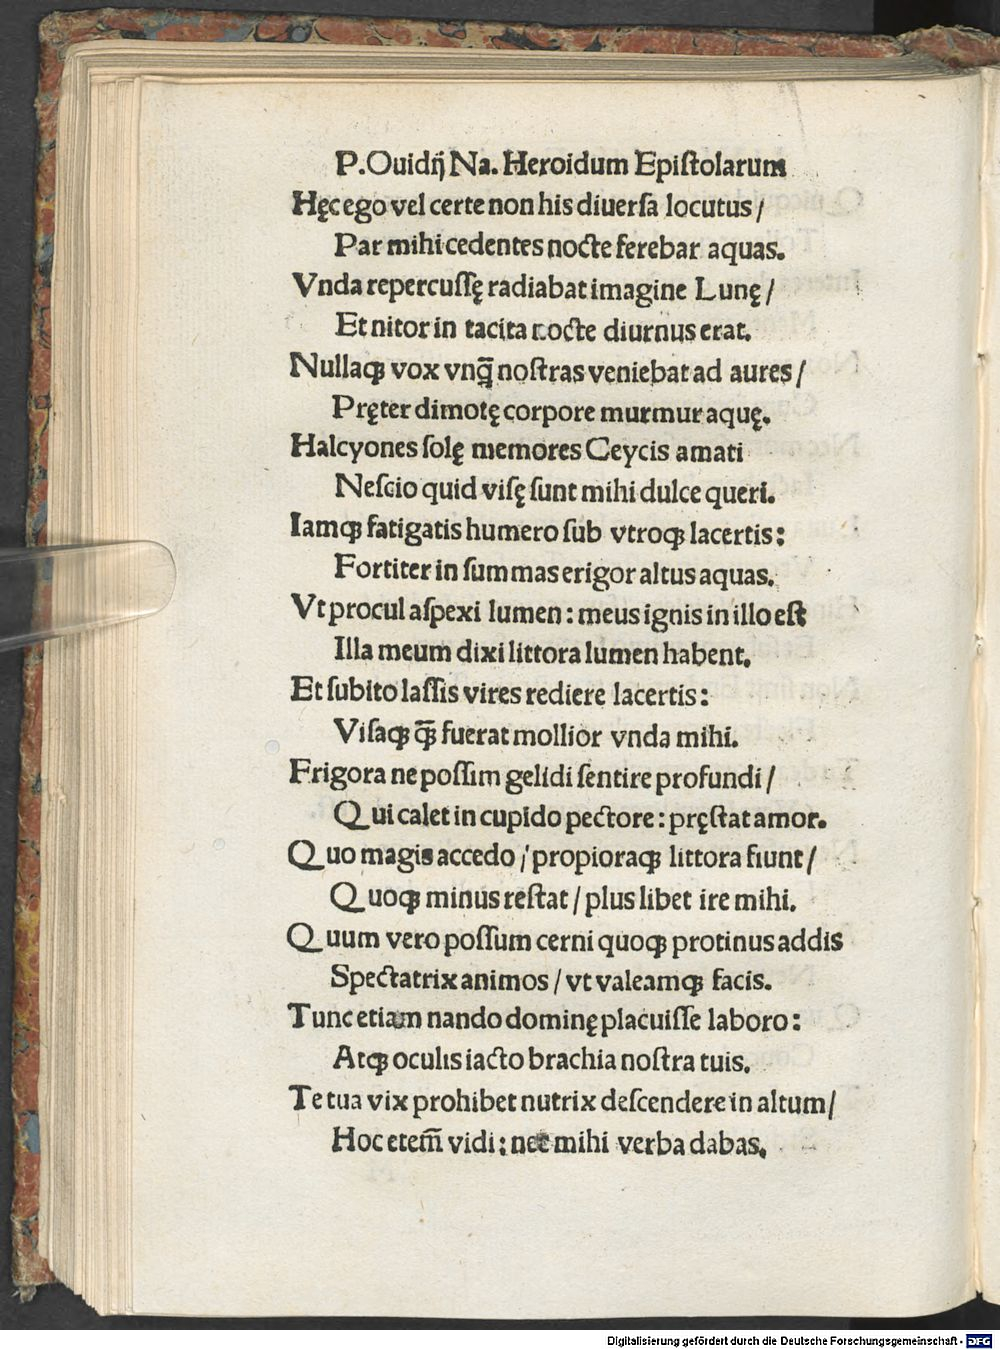 P. Ouidij Na. Heroidum Epiſtolarum
Hęc ego vel certe non his diuerſa locutus /
Par mihi cedentes nocte ferebar aquas.
Vnda repercuſſę radiabat imagine Lunę /
Et nitor in tacita nocte diurnus erat.
Nullaqꝫ vox vnq̄ noſtras veniebat ad aures /
Pręter dimotę corpore murmur aquę.
Halcyones ſolę memores Ceycis amati
Neſcio quid viſę ſunt mihi dulce queri.
Iamqꝫ fatigatis humero ſub vtroqꝫ lacertis:
Fortiter in ſummas erigor altus aquas.
Vt procul aſpexi lumen: meus ignis in illo eſt
Illa meum dixi littora lumen habent.
Et ſubito laſſis vires rediere lacertis:
Viſaqꝫ q̄ꝫ fuerat mollior vnda mihi.
Frigora ne poſſim gelidi ſentire profundi /
Qui calet in cupido pectore: pręſtat amor.
Quo magis accedo / propioraqꝫ littora fiunt /
Quoqꝫ minus reſtat / plus libet ire mihi.
Quum vero poſſum cerni quoqꝫ protinus addis
Spectatrix animos / vt valeamqꝫ facis.
Tunc etiam nando dominę placuiſſe laboro:
Atqꝫ oculis iacto brachia noſtra tuis.
Te tua vix prohibet nutrix deſcendere in altum /
Hoc etem̄ vidi: nec mihi verba dabas.
Digitalisierung gefördert durch die Deutsche Forschungsgemeinschaft - DFG